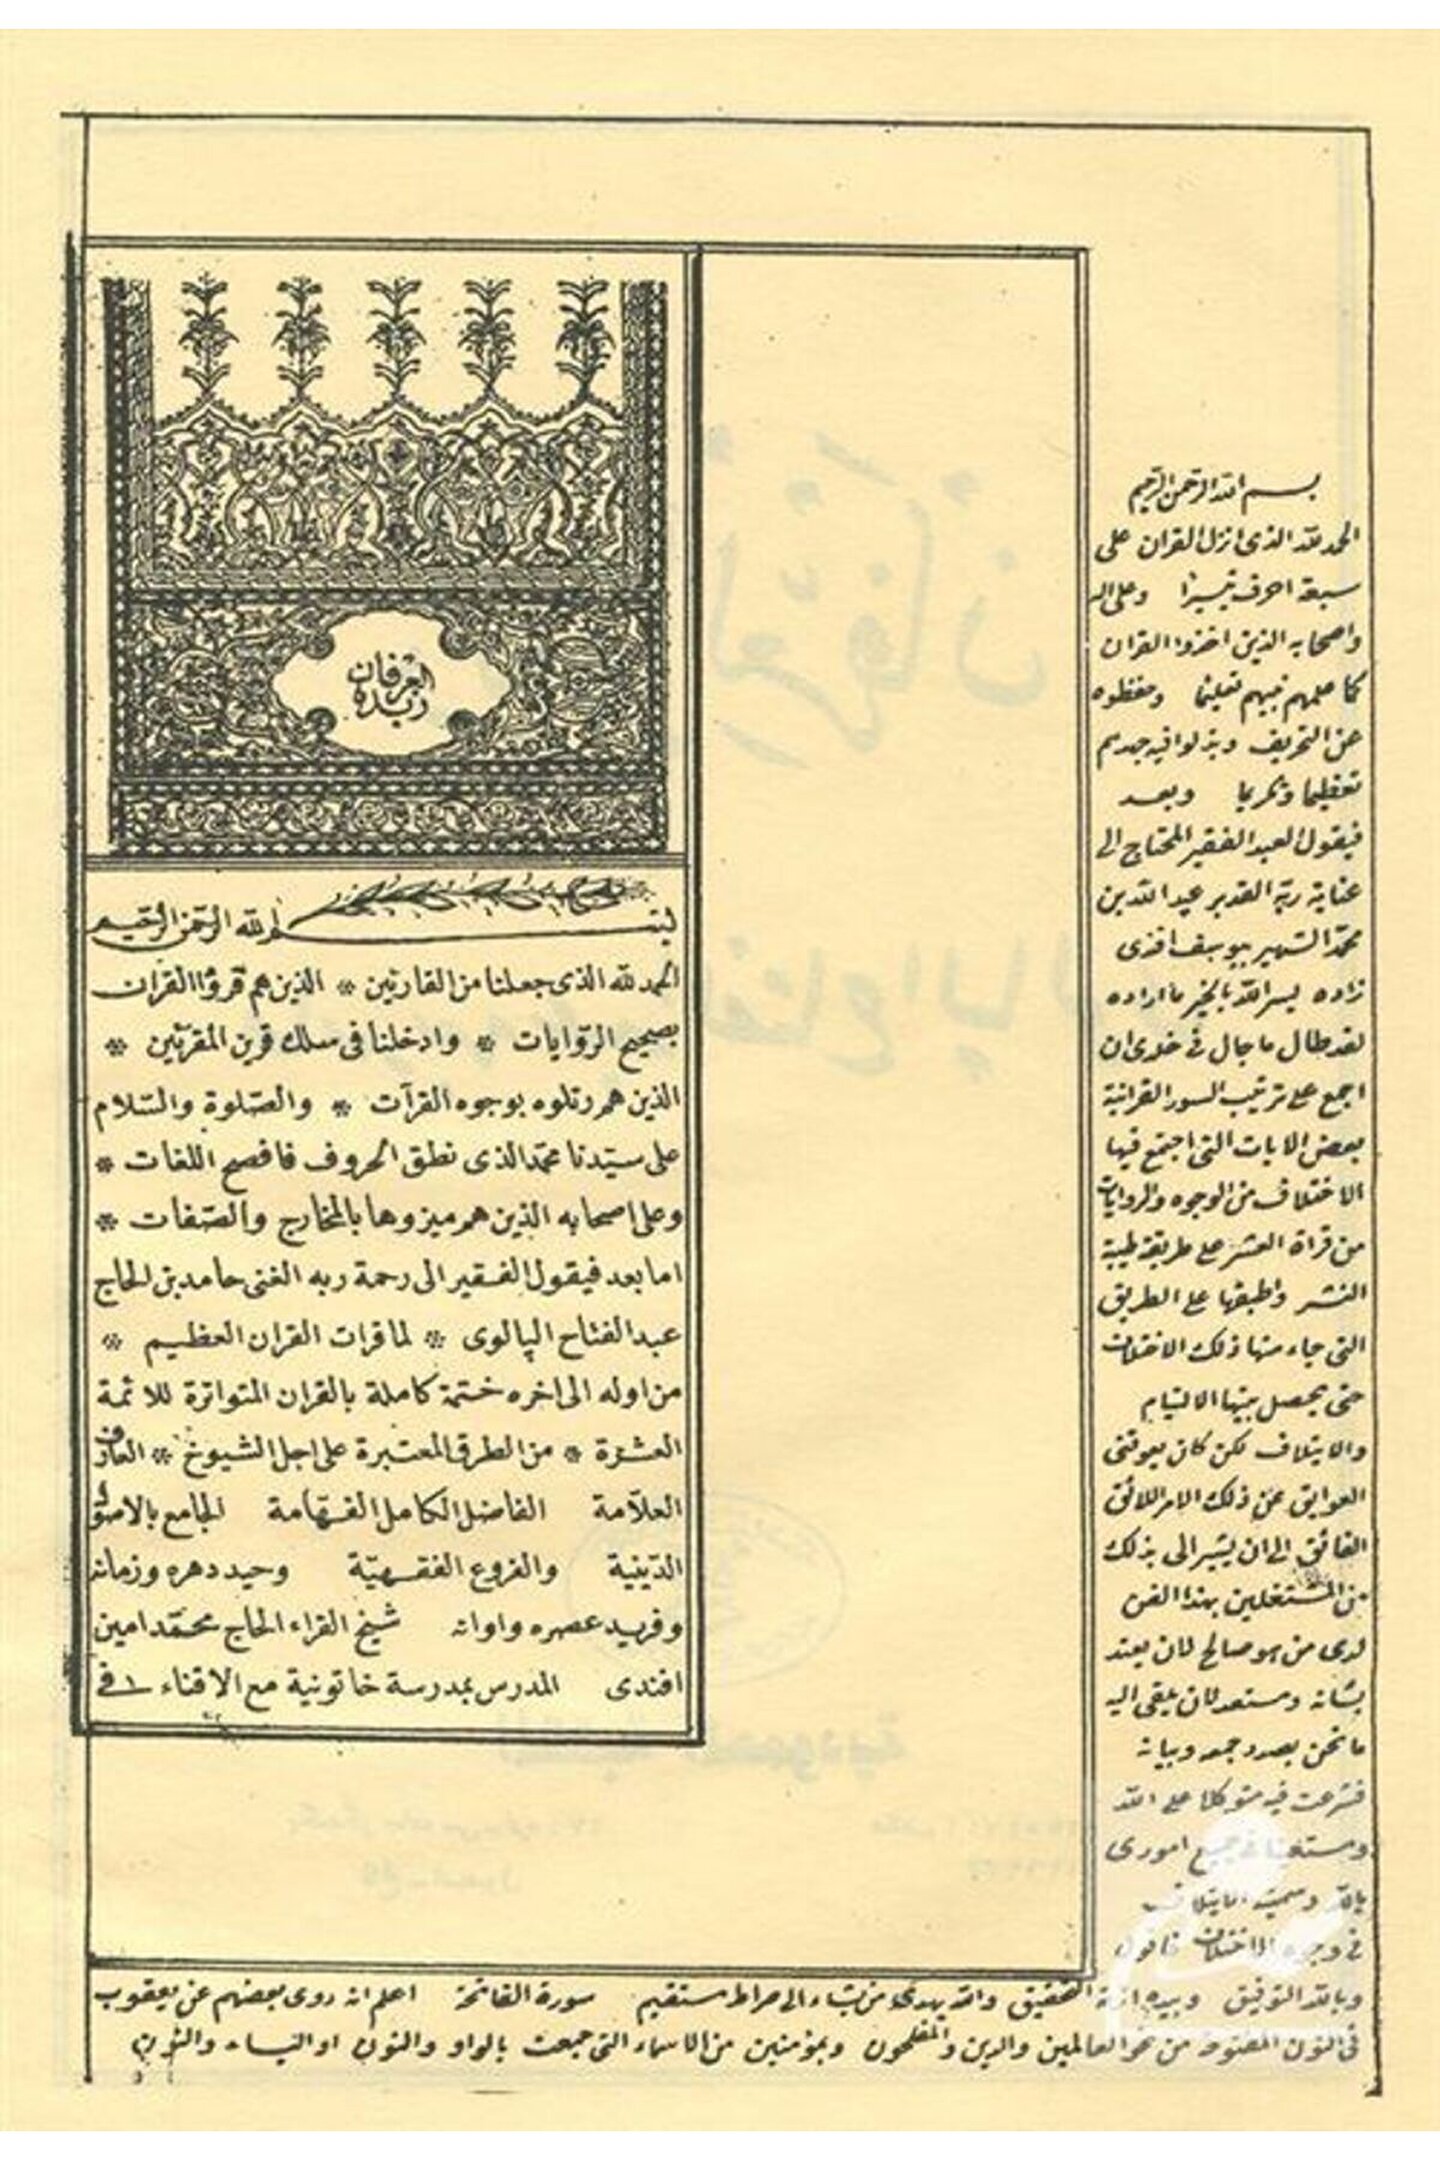 العرفان
زبدة
بسم الله الرحمن الرحيم
الحمد لله الذى جعلنا من القارئين * الذين هم قرؤا القران
بصحيح الروايات * وادخلنا فى مسلك قرين المقربين *
الذين هم رتلوه بوجوه القرآت * والصلوة والسلام
على سيدنا محمد الذى نطق الحروف فافصح اللغات *
وعلى اصحابه الذين هم ميزوها بالمخارج والصفات *
اما بعد فيقول الفقير الى رحمة ربه الغنى حامد بن الحاج
عبد الفتاح الپالوى * لما قرات القران العظيم *
من اوله الى اخره ختمة كاملة بالقران المتواترة للائمة
العشرة * من الطرق المعتبرة على اجل الشيوخ * العارف
العلامة الفاضل الكامل الفهامة الجامع بالاصول
الدينية والفروع الفقهية وحيد دهره وزمانه
وفريد عصره واوانه شيخ القراء الحاج محمد امين
افندى المدرس بمدرسة خاتونية مع الافتاء فى
بسم الله الرحمن الرحيم
الحمد لله الذى انزل القران على
سبعة احرف تيسيرا وعلى اله
واصحابه الذين اخذوا القران
كما علمهم نبيهم تعليما وحفظوه
عن التحريف وبذلوا فيه جهدهم
تعظيما وتكريما وبعد
فيقول العبد الفقير المحتاج الى
عناية ربه القدير عبد الله بن
محمد الشهير بيوسف افندى
زاده يسر الله بالخير ما اراده
لقد طال ما جال فى خلدى ان
اجمع على ترتيب السور القرانية
بعض الايات التى اجتمع فيها
الاختلاف من الوجوه والروايات
من قراة العشر على طريقة طيبة
النشر واطبقها على الطريق
التى جاء منها ذلك الاختلاف
حتى يحصل بينها الالتيام
والايتلاف لكن كان يعوقنى
العوايق عن ذلك الامر اللائق
الفائق الى ان يشير الى بذلك
من المشتغلين بهذا الفن
لدى من هو صالح لان يعتد
بشانه ومستعد لان يلقى اليه
ما نحن بصدد جمعه وبيانه
فشرعت فيه متوكلا على الله
ومستعينا فى جميع امورى
بالله وسميته الايتلاف
فى وجوه الاختلاف فاقول
وبالله التوفيق وبيده ازمة التحقيق والله يهدى من يشاء الى صراط مستقيم سورة الفاتحة اعلم انه روى بعضهم عن يعقوب
فى النون المفتوحة من نحو العالمين والدين والمفلحون وبمؤمنين من الاسماء التى جمعت بالواو والنون او الياء والنون